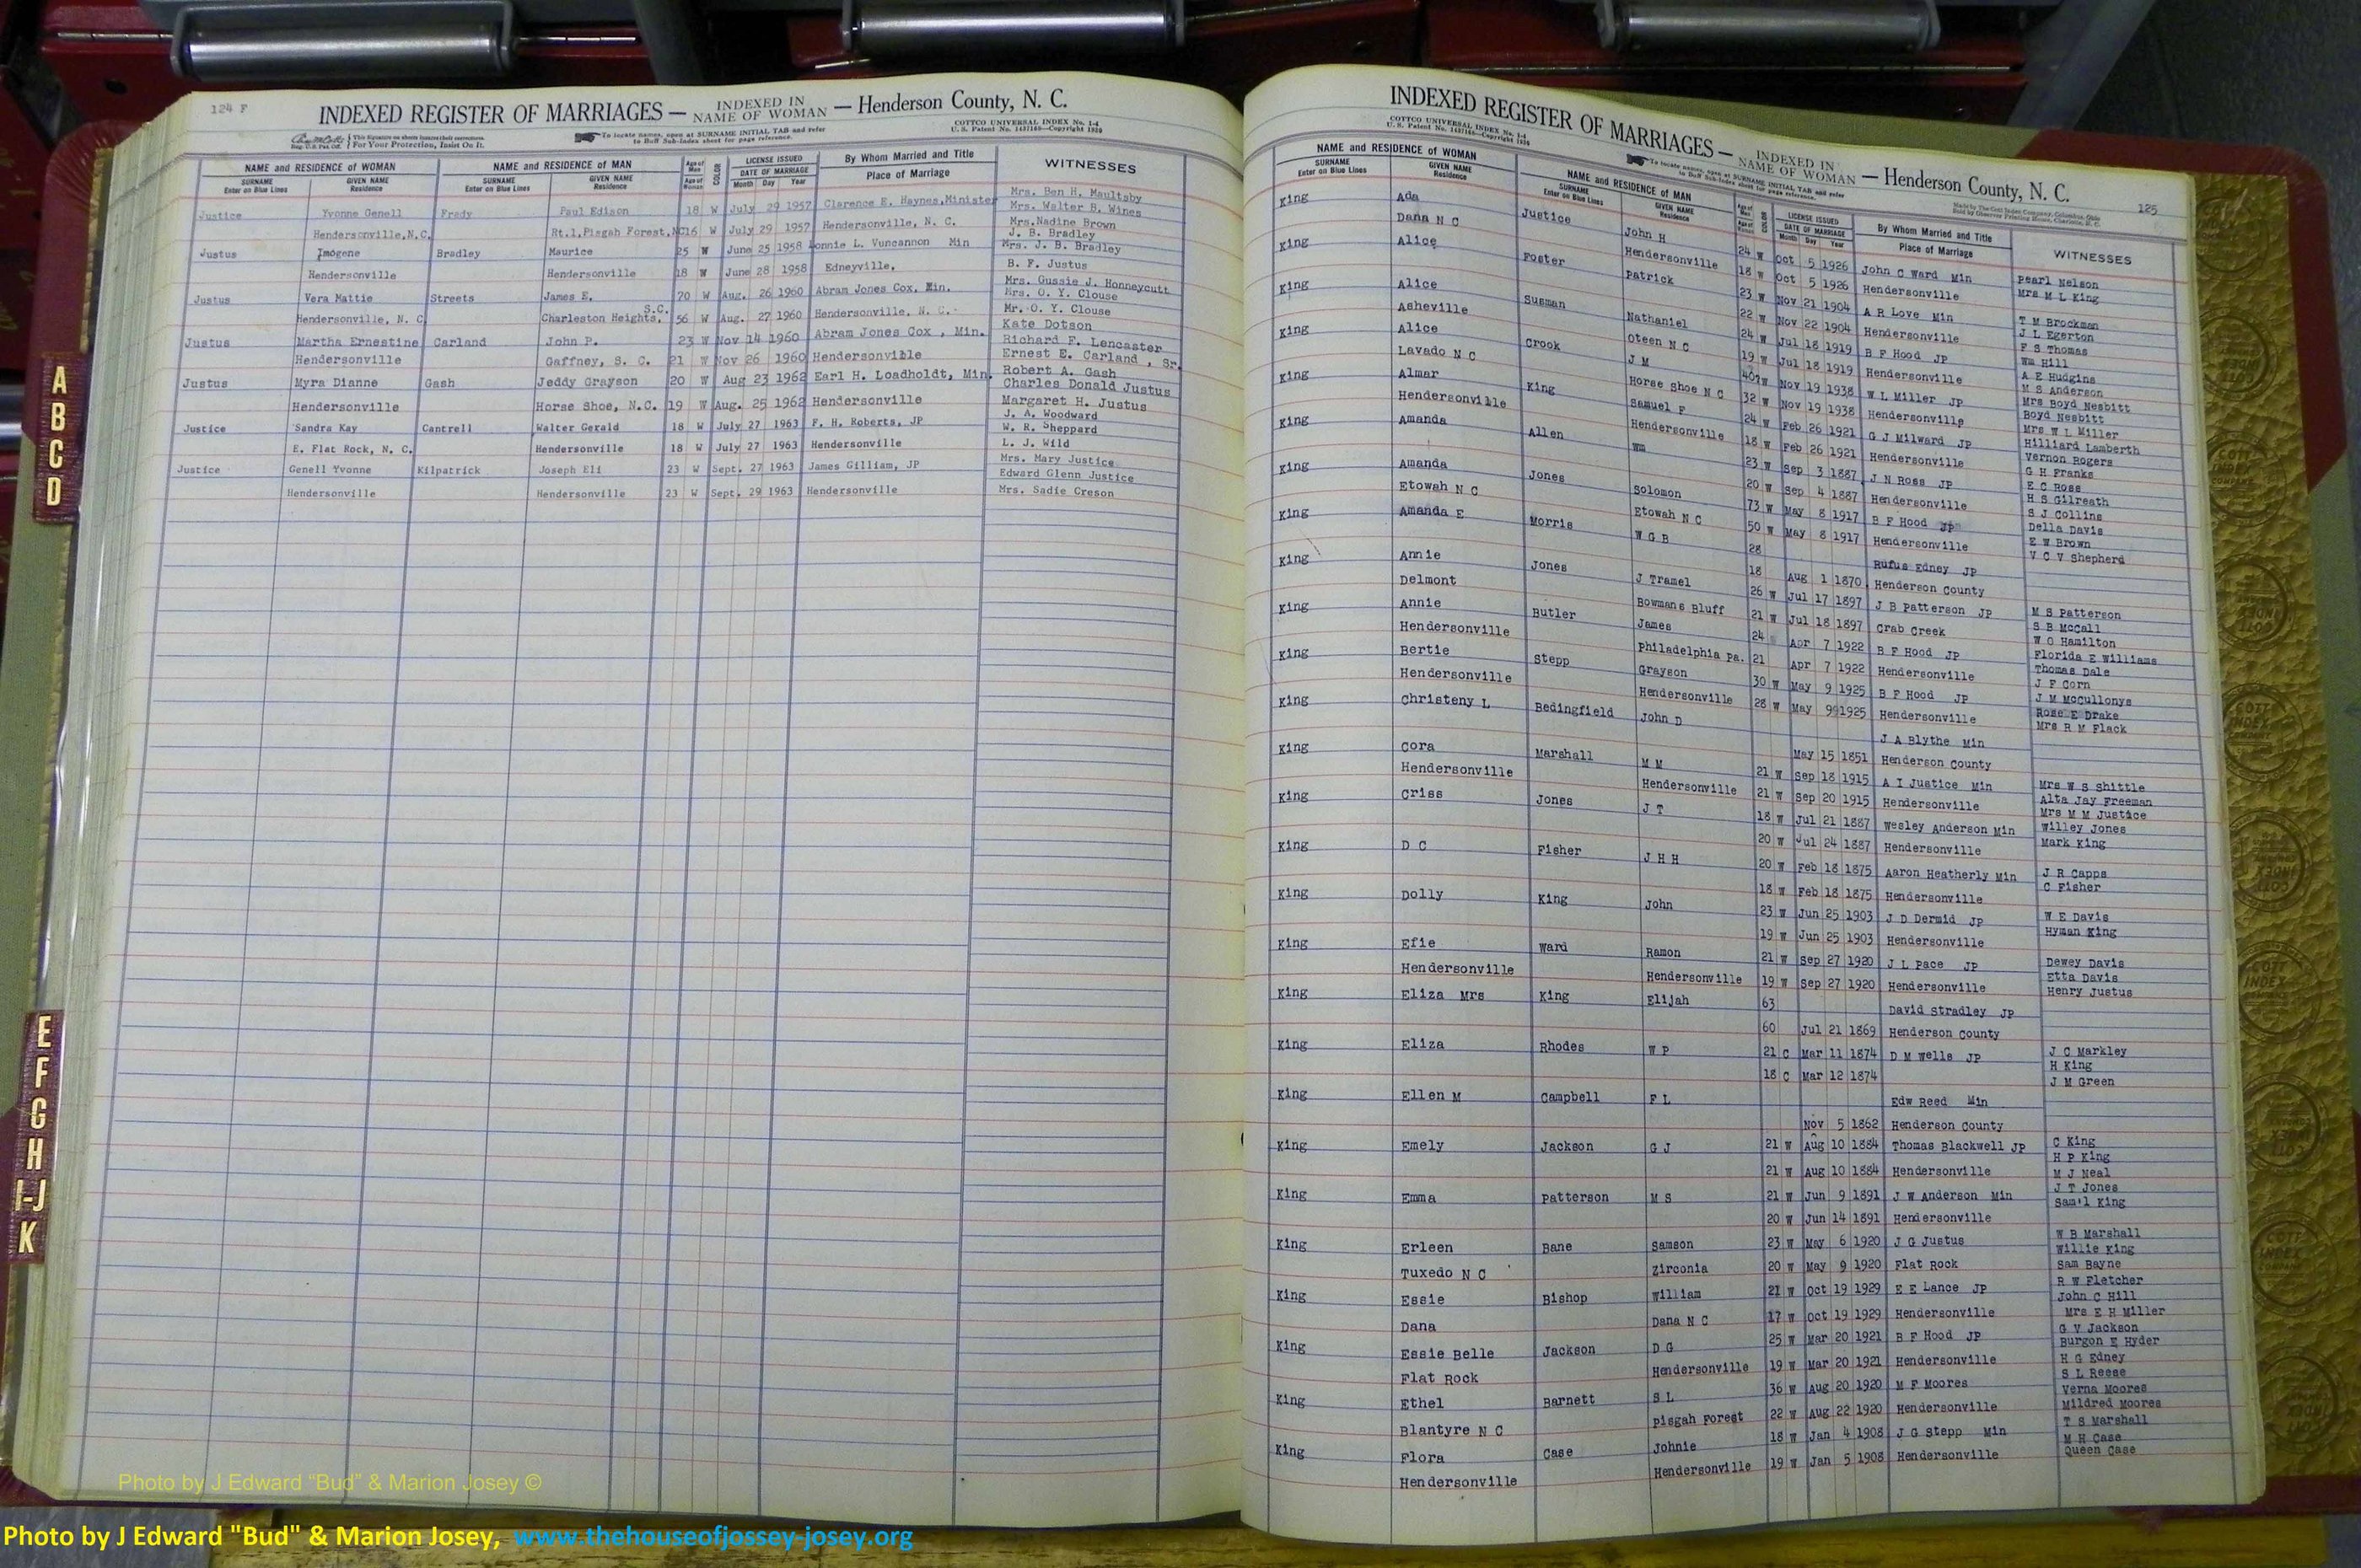 124 F
INDEXED REGISTER OF MARRIAGES — INDEXED IN NAME OF WOMAN — Henderson County, N. C.
This Signature on sheets insures their correctness.
For Your Protection, Insist On It.
To locate names, open at SURNAME INITIAL TAB and refer
to Buff Sub-Index sheet for page reference.
COTTCO UNIVERSAL INDEX No. 1-4
U. S. Patent No. 1437165—Copyright 1939
NAME and RESIDENCE OF WOMAN NAME and RESIDENCE OF MAN Age of Man COLOR LICENSE ISSUED By Whom Married and Title WITNESSES
SURNAME Enter on Blue Lines GIVEN NAME Residence SURNAME Enter on Blue Lines GIVEN NAME Residence Age of Woman DATE OF MARRIAGE Month Day Year Place of Marriage
Mrs. Ben H. Maultsby
Justice Yvonne Genell Frady Paul Edison 18 W July 29 1957 Clarence E. Haynes,Minister Mrs. Walter B. Wines
Hendersonville,N.C. Rt.1,Pisgah Forest,NC 16 W July 29 1957 Hendersonville, N. C. Mrs.Nadine Brown
J. B. Bradley
Justus Imogene Bradley Maurice 25 W June 25 1958 Lonnie L. Vuncannon Min Mrs. J. B. Bradley
Hendersonville Hendersonville 18 W June 28 1958 Edneyville, B. F. Justus
Mrs. Gussie J. Honneycutt
Justus Vera Mattie Streets James E. 70 W Aug. 26 1960 Abram Jones Cox, Min. Mrs. O. Y. Clouse
Hendersonville, N. C. S.C. Charleston Heights, 56 W Aug. 27 1960 Hendersonville, N. C. Mr. O. Y. Clouse
Kate Dotson
Justus Martha Ernestine Carland John P. 23 W Nov 14 1960 Abram Jones Cox , Min. Richard F. Lencaster
Hendersonville Gaffney, S. C. 21 W Nov 26 1960 Hendersonville Ernest E. Carland , Sr.
Robert A. Gash
Justus Myra Dianne Gash Jeddy Grayson 20 W Aug 23 1962 Earl H. Loadholdt, Min. Charles Donald Justus
Hendersonville Horse Shoe, N.C. 19 W Aug. 25 1962 Hendersonville Margaret H. Justus
J. A. Woodward
Justice Sandra Kay Cantrell Walter Gerald 18 W July 27 1963 F. H. Roberts, JP W. R. Sheppard
E. Flat Rock, N. C. Hendersonville 18 W July 27 1963 Hendersonville L. J. Wild
Mrs. Mary Justice
Justice Genell Yvonne Kilpatrick Joseph Eli 23 W Sept. 27 1963 James Gilliam, JP Edward Glenn Justice
Hendersonville Hendersonville 23 W Sept. 29 1963 Hendersonville Mrs. Sadie Creson
A
B
C
D
E
F
G
H
I-J
K
INDEXED REGISTER OF MARRIAGES — INDEXED IN NAME OF WOMAN — Henderson County, N. C.
COTTCO UNIVERSAL INDEX No. 1-4
U. S. Patent No. 1437165—Copyright 1939
To locate names, open at SURNAME INITIAL TAB and refer
to Buff Sub-Index sheet for page reference.
Made by The Cott Index Company, Columbus, Ohio
Sold by Observer Printing House, Charlotte, N. C.
125
NAME and RESIDENCE OF WOMAN NAME and RESIDENCE OF MAN Age of Man LICENSE ISSUED By Whom Married and Title WITNESSES
SURNAME Enter on Blue Lines GIVEN NAME Residence SURNAME Enter on Blue Lines GIVEN NAME Residence Age of Woman DATE OF MARRIAGE Month Day Year Place of Marriage
King Ada Justice John H 24 W Oct 5 1926 John C Ward Min Pearl Nelson
Dana N C Hendersonville 18 W Oct 5 1926 Hendersonville Mrs M L King
King Alice Foster Patrick 23 W Nov 21 1904 A R Love Min T M Brockman
22 W Nov 22 1904 Hendersonville J L Egerton
F S Thomas
King Alice Susman Nathaniel 24 W Jul 18 1919 B F Hood JP Wm Hill
Asheville Oteen N C 19 W Jul 18 1919 Hendersonville A E Hudgins
M S Anderson
King Alice Crook J M 40? W Nov 19 1938 W L Miller JP Mrs Boyd Nesbitt
Lavado N C Horse Shoe N C 32 W Nov 19 1938 Hendersonville Boyd Nesbitt
Mrs W L Miller
King Almar King Samuel F 24 W Feb 26 1921 G J Milward JP Hilliard Lamberth
Hendersonville Hendersonville 18 W Feb 26 1921 Hendersonville Vernon Rogers
G H Franks
King Amanda Allen Wm 23 W Sep 3 1887 J N Ross JP E C Ross
20 W Sep 4 1887 Hendersonville H S Gilreath
S J Collins
King Amanda Jones Solomon 73 W May 8 1917 B F Hood JP Della Davis
Etowah N C Etowah N C 50 W May 8 1917 Hendersonville E W Brown
V C V Shepherd
King Amanda E Morris W G B 28 Rufus Edney JP
18 Aug 1 1870 Henderson County
King Annie Jones J Tramel 26 W Jul 17 1897 J B Patterson JP M S Patterson
Delmont Bowmans Bluff 21 W Jul 18 1897 Crab Creek S B McCall
W O Hamilton
King Annie Butler James 24 Apr 7 1922 B F Hood JP Florida E Williams
Hendersonville Philadelphia Pa. 21 Apr 7 1922 Hendersonville Thomas Dale
J F Corn
King Bertie Stepp Grayson 30 W May 9 1925 B F Hood JP J M McCullonys
Hendersonville Hendersonville 28 W May 99 1925 Hendersonville Rose E Drake
Mrs R M Flack
King Christeny L Bedingfield John D J A Blythe Min
May 15 1851 Henderson County
King Cora Marshall M M 21 W Sep 18 1915 A I Justice Min Mrs W S Shittle
Hendersonville Hendersonville 21 W Sep 20 1915 Hendersonville Alta Jay Freeman
Mrs M M Justice
King Criss Jones J T 18 W Jul 21 1887 Wesley Anderson Min Willey Jones
20 W Jul 24 1887 Hendersonville Mark King
King D C Fisher J H H 20 W Feb 18 1875 Aaron Heatherly Min J R Capps
18 W Feb 18 1875 Hendersonville C Fisher
King Dolly King John 23 W Jun 25 1903 J D Dermid JP W E Davis
19 W Jun 25 1903 Hendersonville Hyman King
King Efie Ward Ramon 21 W Sep 27 1920 J L Pace JP Dewey Davis
Hendersonville Hendersonville 19 W Sep 27 1920 Hendersonville Etta Davis
Henry Justus
King Eliza Mrs King Elijah 63 David Stradley JP
60 Jul 21 1869 Henderson County
King Eliza Rhodes W P 21 C Mar 11 1874 D M Wells JP J C Markley
18 C Mar 12 1874 H King
J M Green
King Ellen M Campbell F L Edw Reed Min
Nov 5 1862 Henderson County
King Emely Jackson G J 21 W Aug 10 1884 Thomas Blackwell JP C King
H P King
21 W Aug 10 1884 Hendersonville M J Neal
King Emma Patterson M S 21 W Jun 9 1891 J W Anderson Min J T Jones
20 W Jun 14 1891 Hendersonville Sam'l King
King Erleen Bane Samson 23 W May 6 1920 J G Justus W B Marshall
Willie King
Tuxedo N C Zirconia 20 W May 9 1920 Flat Rock Sam Bayne
King Essie Bishop William 21 W Oct 19 1929 E E Lance JP R W Fletcher
John C Hill
Dana Dana N C 17 W Oct 19 1929 Hendersonville Mrs E H Miller
King Essie Belle Jackson D G 25 W Mar 20 1921 B F Hood JP G V Jackson
Burgon E Hyder
Flat Rock Hendersonville 19 W Mar 20 1921 Hendersonville H G Edney
King Ethel Barnett S L 36 W Aug 20 1920 M F Moores S L Reese
Verna Moores
Blantyre N C Pisgah Forest 22 W Aug 22 1920 Hendersonville Mildred Moores
King Flora Case Johnie 18 W Jan 4 1908 J G Stepp Min T S Marshall
M H Case
Hendersonville Hendersonville 19 W Jan 5 1908 Hendersonville Queen Case
Photo by J Edward “Bud” & Marion Josey ©
Photo by J Edward "Bud" & Marion Josey, www.thehouseofjossey-josey.org